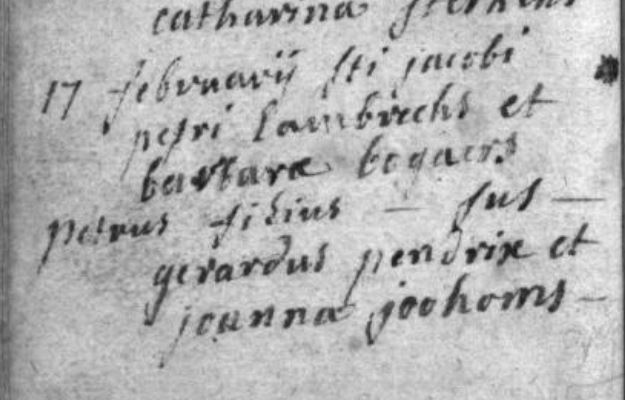 catharina sterkens
17 februarij sti jacobi
petri lambrechs et
barbara bogaers
petrus filius — sus —
gerardus pendrix et
joanna joohoms —